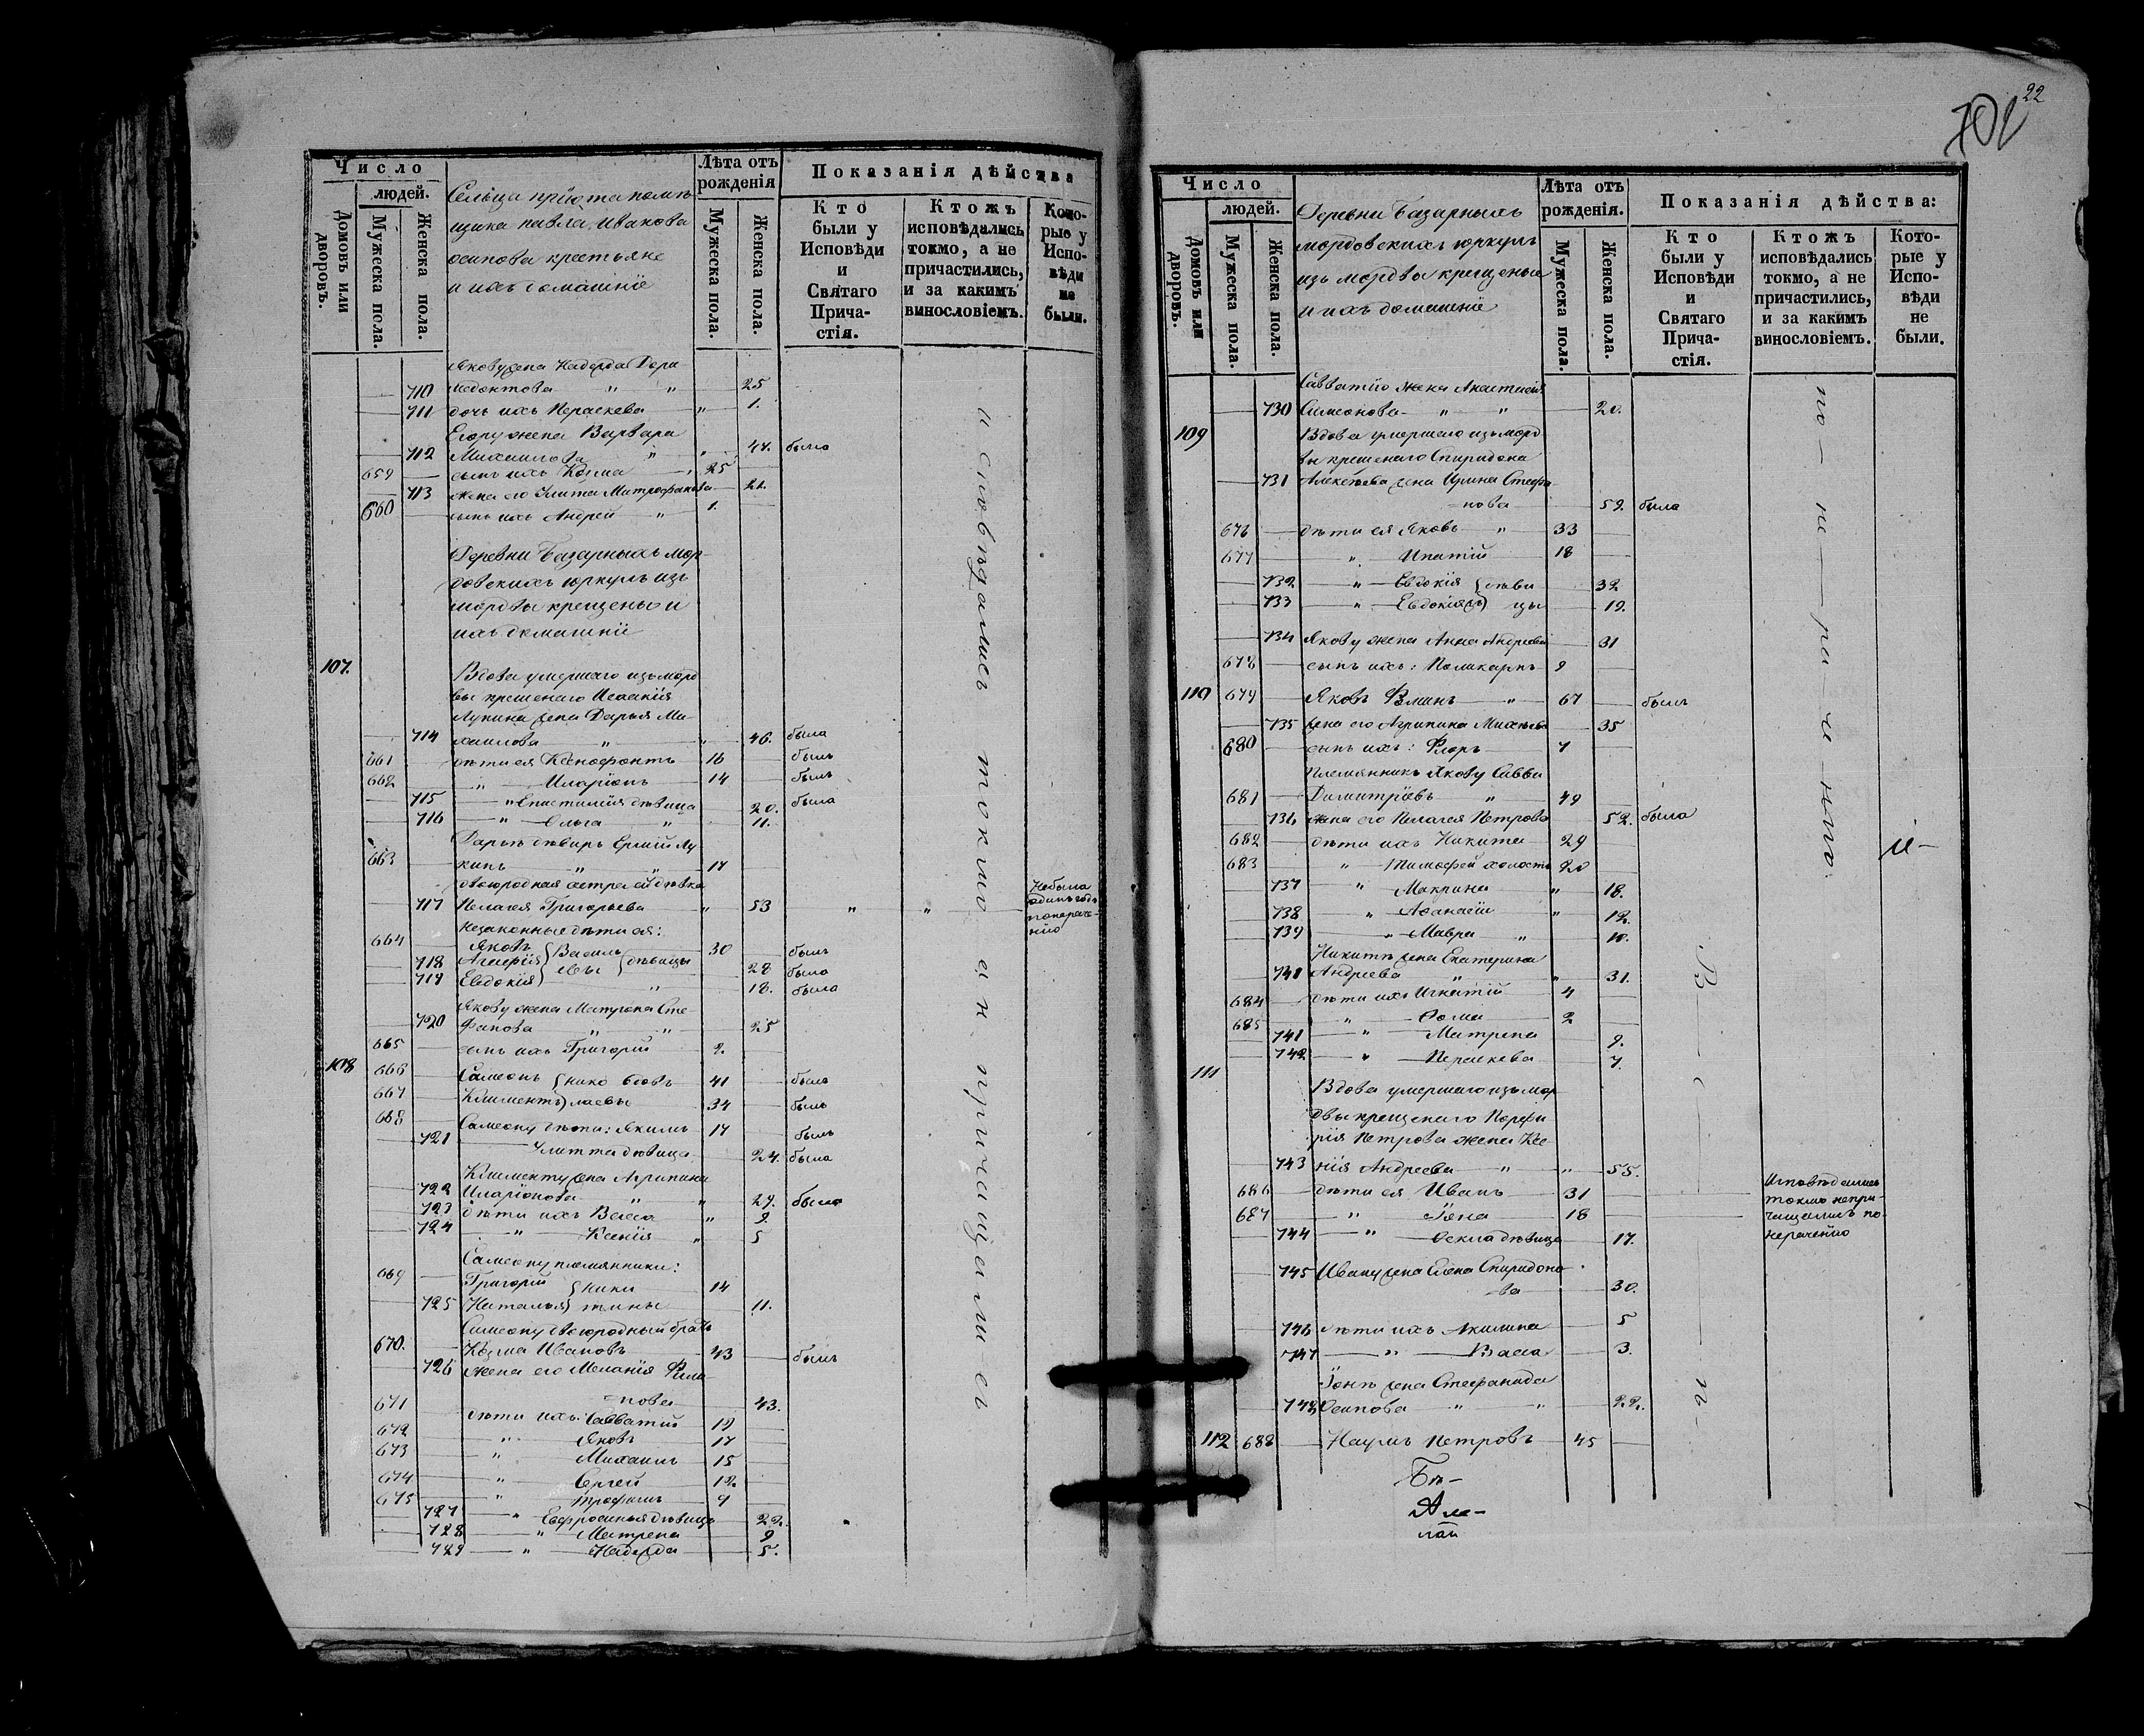 Число
людей.
Домовъ или дворовъ.
Мужеска пола.
Женска пола.
Сельца Пріюта помѣ-
щика павла Иванова
осипова крестьяне
и ихъ домашніе
Лѣта отъ рожденія
Мужеска пола.
Женска пола.
Показанія дѣйства
Кто были у Исповѣди и Святаго Причастія.
Ктожъ исповѣдались токмо, а не причастились, и за какимъ винословіемъ.
Которые у Исповѣди не были.
Якову жена Надежда Дори-
710 медонтова " " 25
711 дочь ихъ Параскева " 1.
Егору жена Варвара
712 Михаилова " " 44. была
659 сынъ ихъ Козма " 25
713 жена его Улита Митрофанова 21.
660 сынъ ихъ Андрей " 1.
Деревни Базарныхъ мор-
довскихъ юркулъ изъ
мордвы крещены и
ихъ домашніе
107. Вдова умершаго изъ морд
вы крещенаго Исаакія
Лукина жена Дарья Ми-
714 хаилова " " 46. была
661 дѣти ея Ксенофонтъ 16 былъ
662 " Иларіонъ 14 былъ
715 " Епистимія дѣвица 20. была
716 " Ольга " 11.
Дарьѣ дѣверь Ермій Лу
663 кинъ " " 17
двоюродная сестра ей дѣвка
717 Пелагея Григорьева " 53 " "
Небыла
одинъ годъ
понераче-
нію
незаконные дѣти ея:
664 Яковъ 30 былъ
718 Агафія Василь дѣвицы 28 была
719 Евдокія евы " 18. была
Якову жена Матрона Сте
720 фанова " " 25
665 сынъ ихъ Григорій 2.
108 666 Симеонъ Нико вдовъ 41 былъ
667 Климентъ лаевы 34 былъ
668 Симеону дѣти: Якимъ 17 былъ
721 Улитта дѣвица 24. была
Клименту жена Агрипина
722 Иларіонова " " 29. была
723 дѣти ихъ Васса " 9.
724 " Ксенія " 5
Симеону племянники:
669 Григорій Ники 14
725 Наталья тины 11.
Симеону двоюродный братъ
670. Козма Ивановъ 43 былъ
726 жена его Меланія Фила-
нова 43.
671 дѣти ихъ: Савватій 19
672 " Яковъ 17
673 " Михаилъ 15
674 " Сергей 12.
675 " Трофимъ 9
727 " Евфросинья дѣвица 22.
728 " Матрена 9
729 " Надежда 5.
исповѣдались токмо а н причащали-сь
22
701
Число
людей.
Домовъ или дворовъ.
Мужеска пола.
Женска пола.
Деревни Базарныхъ
мордовскихъ юркулъ
изъ мордвы крещеные
и ихъ домашніе
Лѣта отъ рожденія.
Мужеска пола.
Женска пола.
Показанія дѣйства:
Кто были у Исповѣди и Святаго Причастія.
Ктожъ исповѣдались токмо, а не причастились, и за какимъ винословіемъ.
Которые у Исповѣди не были.
Савватію жена Анастасія
730 Симеонова " " 20.
109 Вдова умершаго изъ морд
вы крещенаго Спиридона
731 Алексѣева жена Ирина Стефа
нова 59. была
676 дѣти ея Яковъ " 33
677 " Ипатій 18
732 " Евдокія дѣви 32
733 " Евдокія цы 19.
734 Якову жена Анна Андреева 31
678 сынъ ихъ: Поликарпъ 9
110 679 Яковъ " 67 былъ
735 жена его Агрипина Михѣева 35
680 сынъ ихъ: Флоръ 7
Племянникъ Якову Савва
681 Димитріевъ " 49
736 жена его Пелагея Петрова 52. была
682 дѣти ихъ Никита 29
683 " Тимофей холостъ 20
737 " Макрина " 18.
738 " Афанасія " 12.
739 " Мавра " 10.
Никитѣ жена Екатерина
741 Андреева " " 31.
684 дѣти ихъ Игнатій 4
685 " Фома 2
741 " Матрена 9.
742 " Параскева 7.
111 Вдова умершаго изъ мор
двы крещенаго Порфи
рія Петрова жена Ксе-
743 нія Андреева " " 55.
686 дѣти ея Иванъ 31
687 " Іона 18
744 " Фекла дѣвица 17.
Исповѣдались
токмо непри-
чащались по-
нераченію
745 Ивану жена Елена Спиридоно-
ва 30.
746 дѣти ихъ Акилина 5
747 " Васса 3.
Іонѣ жена Стефанида
748 Осипова " " 22.
112 688 Наумъ Петровъ 45
по — не — ра — ч — нію.